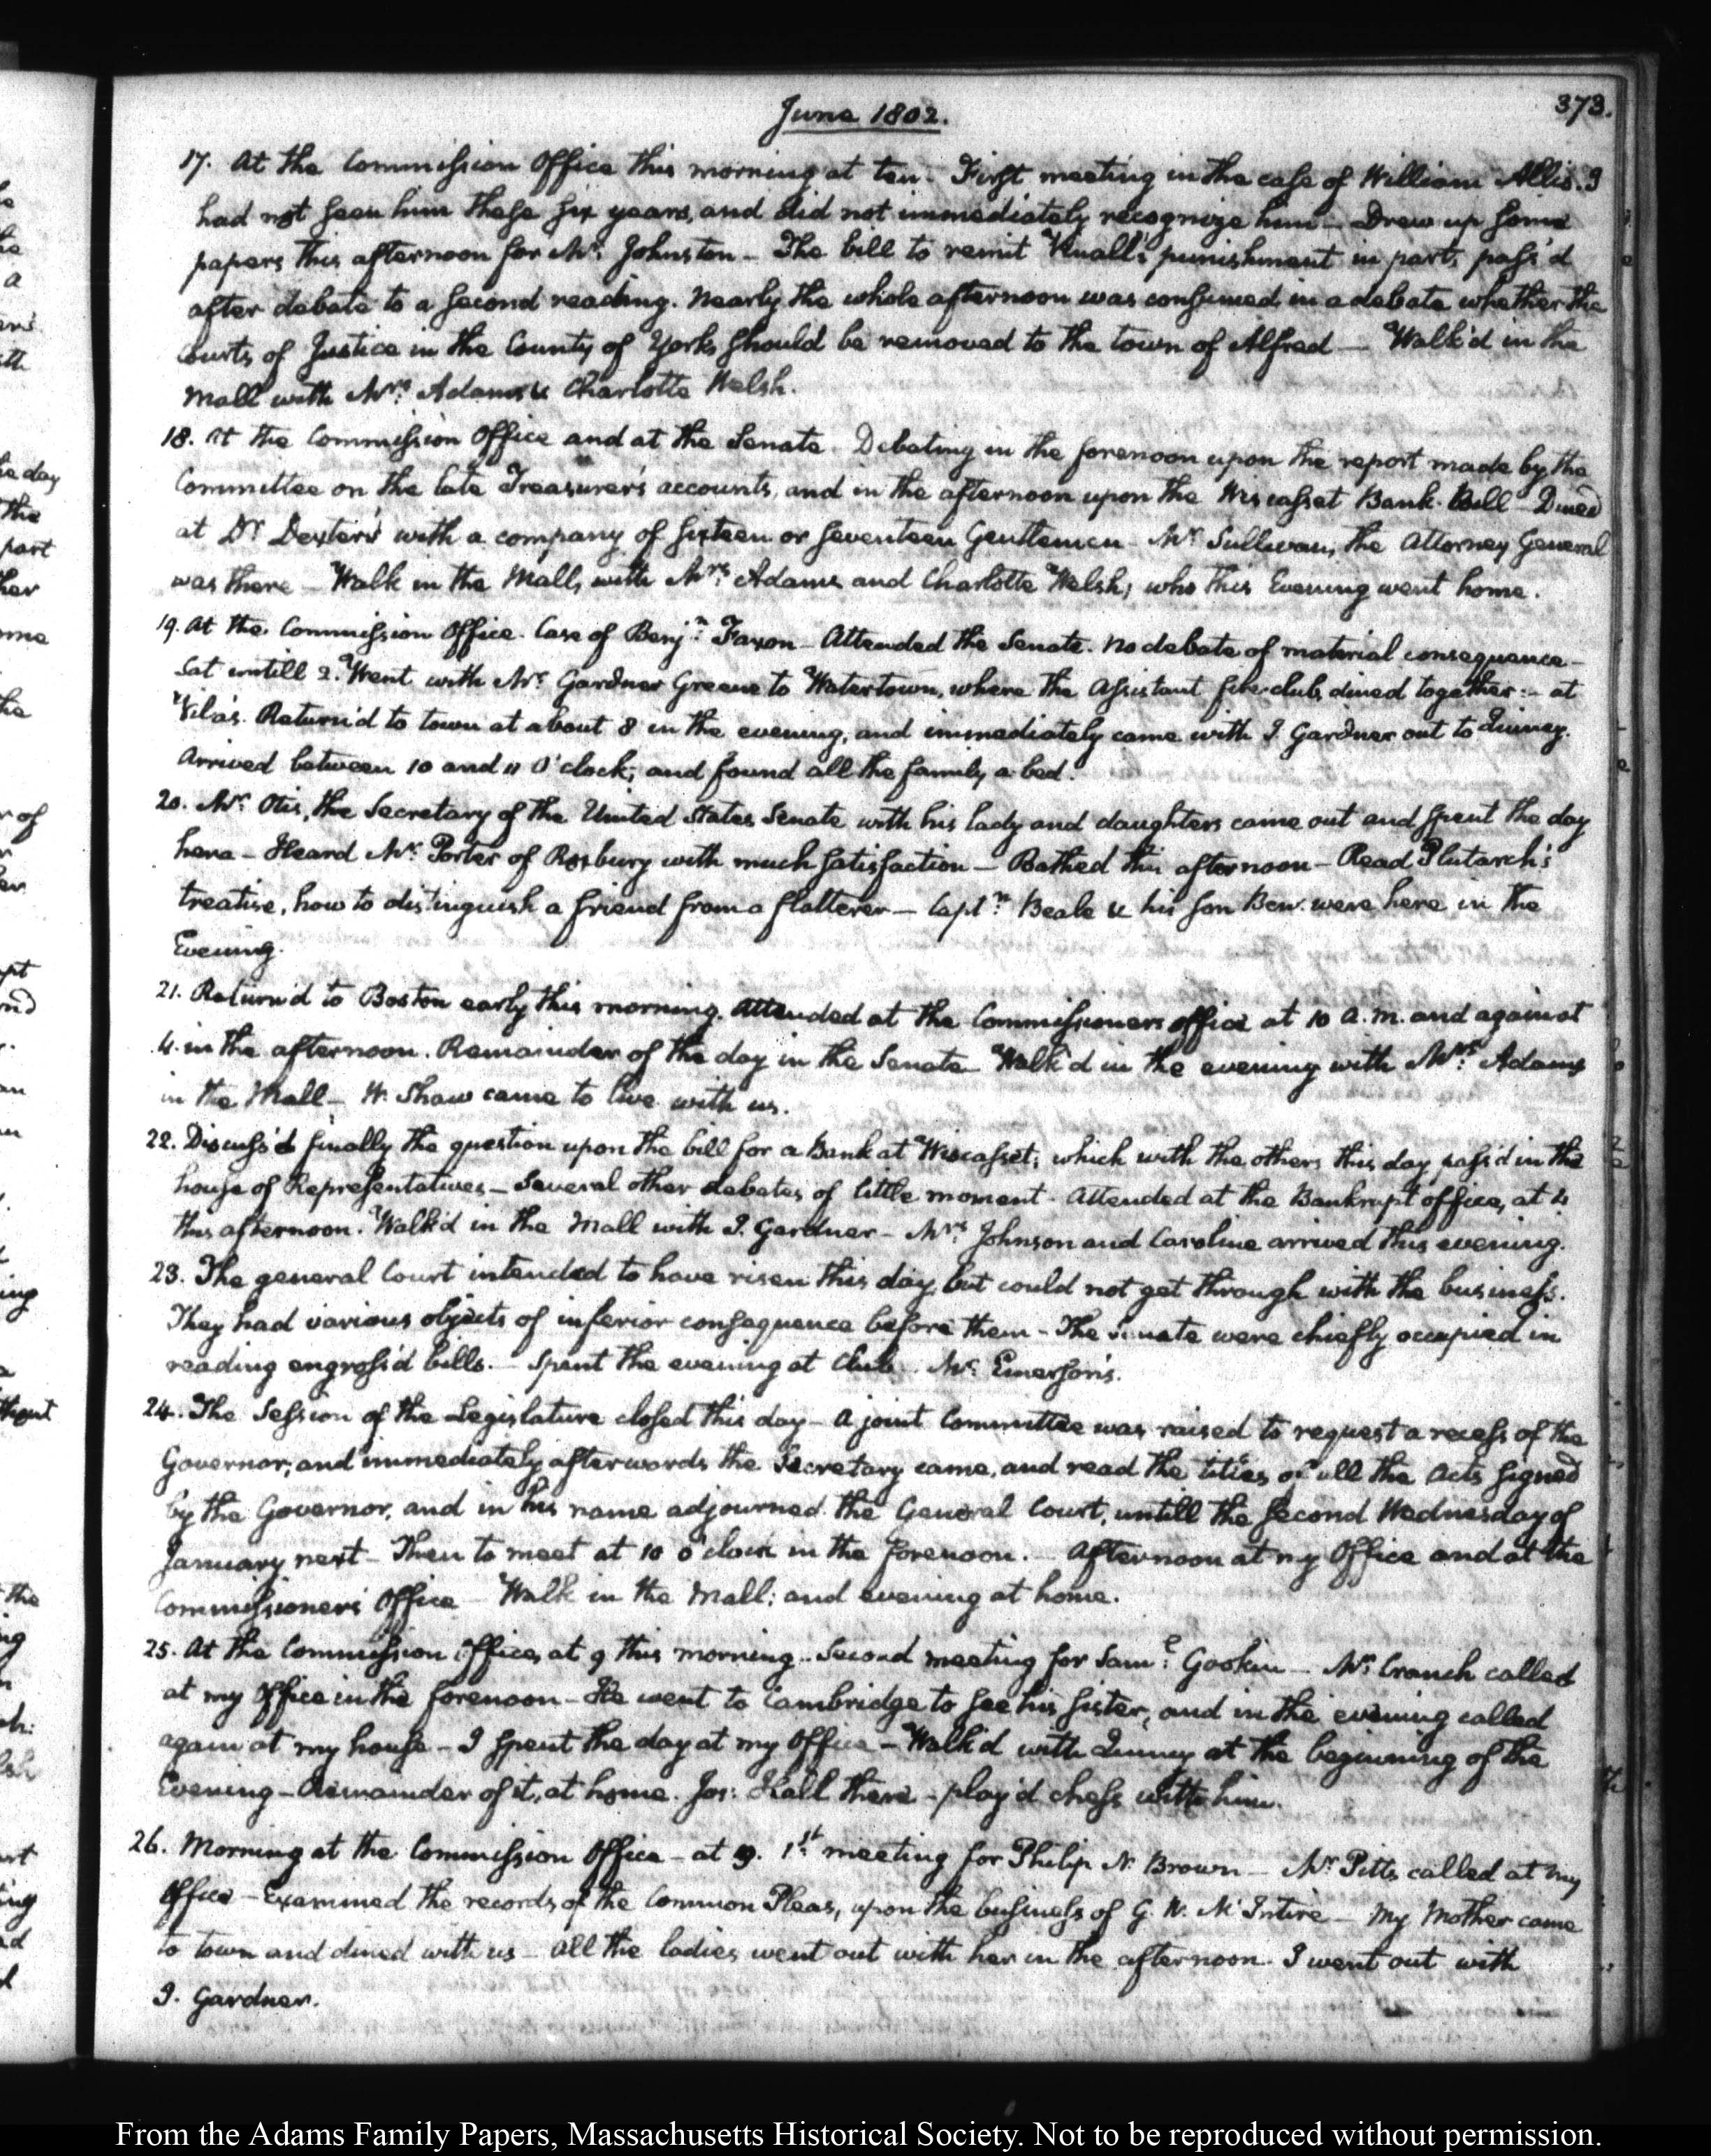 June 1802.
373.
17. At the Commission Office this morning at ten. First meeting in the case of William Allis. I
had not seen him these six years, and did not immediately recognize him – Drew up some
papers this afternoon for Mr. Johnston – The bill to remit punishment in part, pass'd
after debate to a second reading. Nearly the whole afternoon was consumed in a debate whether the
Courts of Justice in the County of York, should be removed to the town of Alfred – Walk'd in the
Mall with Mrs. Adams & Charlotte Welsh.
18. At the Commission Office and at the Senate – Debating in the forenoon upon the report made by the
Committee on the late Treasurer's accounts, and in the afternoon upon the Wiscasset Bank-Bill – Dined
at Dr. Dexter's with a company of sixteen or seventeen Gentlemen – Mr. Sullivan, the Attorney General
was there – Walk in the Mall, with Mrs. Adams and Charlotte Welsh, who this Evening went home.
19. At the Commission Office. Case of Benjn. Faxon – Attended the Senate. No debate of material consequence –
Sat untill 2. Went with Mr. Gardner Greene to Watertown, where the Assistant fire-club, dined together: – at
Vila's. Return'd to town at about 8 in the evening, and immediately came with J. Gardner out to Quincy.
Arrived between 10 and 11 O'clock; and found all the family a-bed.
20. Mr. Otis, the Secretary of the United States Senate with his lady and daughters came out and spent the day
here – Heard Mr. Porter of Roxbury with much satisfaction – Bathed this afternoon – Read Plutarch's
treatise, how to distinguish a friend from a flatterer – Captn. Beale & his son Ben. were here in the
Evening.
21. Return'd to Boston early this morning. Attended at the Commissioners office at 10 A.M. and again at
4. in the afternoon. Remainder of the day in the Senate – Walk'd in the evening with Mrs. Adams
in the Mall – W. Shaw came to live with us.
22. Discuss'd finally the question upon the bill for a Bank at Wiscasset; which with the others this day pass'd in the
house of Representatives – Several other debates of little moment. Attended at the Bankrupt office, at 4
this afternoon. Walk'd in the Mall with J. Gardner – Mrs. Johnson and Caroline arrived this evening.
23. The general Court intended to have risen this day, but could not get through with the business.
They had various objects of inferior consequence before them – The Senate were chiefly occupied in
reading engross'd bills. – Spent the evening at Club. Mr. Emerson's.
24. The Session of the Legislature closed this day – A joint Committee was raised to request a recess of the
Governor; and immediately afterwards the Secretary came, and read the titles of all the Acts signed
by the Governor, and in his name adjourned the General Court, untill the second Wednesday of
January next – Then to meet at 10 o'clock in the forenoon. – Afternoon at my Office and at the
Commissioners Office – Walk in the Mall; and evening at home.
25. At the Commission Office, at 9 this morning – Second meeting for Saml. Gookin – Mr. Cranch called
at my Office in the forenoon – He went to Cambridge to see his sister, and in the evening called
again at my house – I spent the day at my Office – Walk'd with Quincy at the beginning of the
Evening – Remainder of it, at home. Jos: Hall there – play'd chess with him.
26. Morning at the Commission Office – at 9. 1st. meeting for Philip N. Brown – Mr. Pitts called at my
Office – Examined the records of the Common Pleas, upon the business of G. W. McIntire – My Mother came
to town and dined with us – All the ladies went out with her in the afternoon. I went out with
J. Gardner.
From the Adams Family Papers, Massachusetts Historical Society. Not to be reproduced without permission.